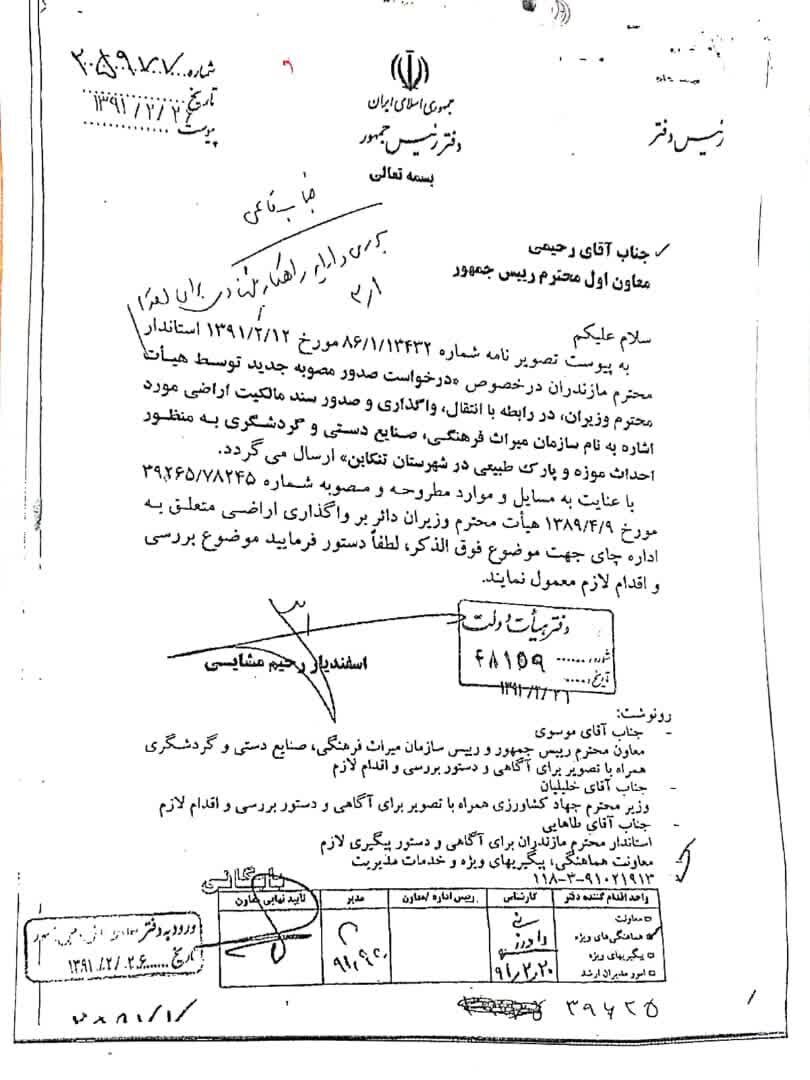 رئیس دفتر
جمهوری اسلامی ایران
دفتر رئیس جمهور
بسمه تعالی
شماره
تاریخ ۱۳۹۱/۲/۲۶
پیوست
جناب آقای رحیمی
معاون اول محترم رییس جمهور
سلام علیکم
به پیوست تصویر نامه شماره ۸۶/۱/۱۳۴۳۲ مورخ ۱۳۹۱/۲/۱۲ استاندار
محترم مازندران درخصوص «درخواست صدور مصوبه جدید توسط هیأت
محترم وزیران، در رابطه با انتقال، واگذاری و صدور سند مالکیت اراضی مورد
اشاره به نام سازمان میراث فرهنگی، صنایع دستی و گردشگری به منظور
احداث موزه و پارک طبیعی در شهرستان تنکابن» ارسال می گردد.
با عنایت به مسایل و موارد مطروحه و مصوبه شماره ۳۹,۲۶۵/۷۸۲۴۵
مورخ ۱۳۸۹/۴/۹ هیأت محترم وزیران دائر بر واگذاری اراضی متعلق به
اداره چای جهت موضوع فوق الذکر، لطفاً دستور فرمایید موضوع بررسی
و اقدام لازم معمول نمایند.
اسفندیار رحیم مشایی
دفتر هیأت دولت
شماره ۴۸۱۵۹
تاریخ ۱۳۹۱/۲/۲۶
رونوشت:
- جناب آقای موسوی
معاون محترم رییس جمهور و رییس سازمان میراث فرهنگی، صنایع دستی و گردشگری
همراه با تصویر برای آگاهی و دستور بررسی و اقدام لازم
- جناب آقای خلیلیان
وزیر محترم جهاد کشاورزی همراه با تصویر برای آگاهی و دستور بررسی و اقدام لازم
- جناب آقای طاهایی
استاندار محترم مازندران برای آگاهی و دستور پیگیری لازم
معاونت هماهنگی، پیگیریهای ویژه و خدمات مدیریت
۱۱۸-۳-۹۱۰۲۱۹۱۳
بایگانی
واحد اقدام کننده دفتر کارشناس رییس اداره/معاون مدیر تایید نهایی معاون
معاونت
هماهنگی های ویژه
پیگیریهای ویژه
امور مدیران ارشد
ورود به دفتر
تاریخ ۱۳۹۱/۲/۲۶
۳۹۶۲۵